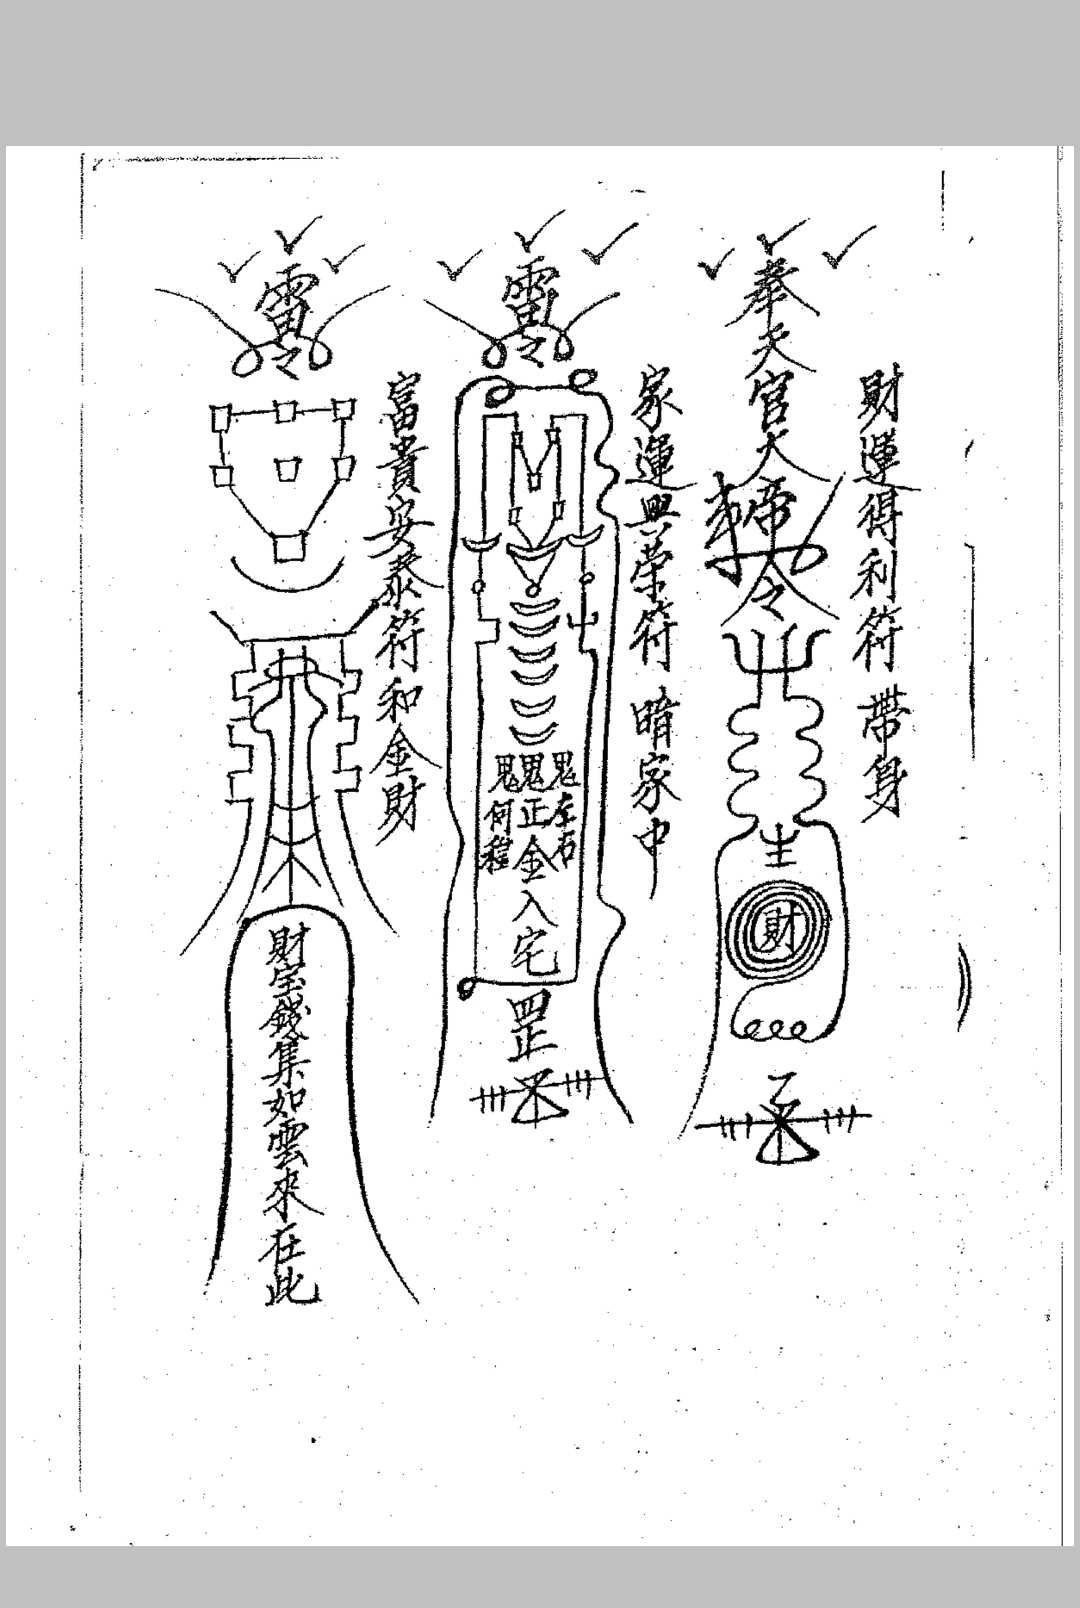 財運得利符 帶身
奉天官大帝令
生
財
家運興荣符 暗家中
雷令
鬼鬼鬼
正金入宅
左右
罡
富貴安泰符和金財
雷令
財宝錢集如雲來在此